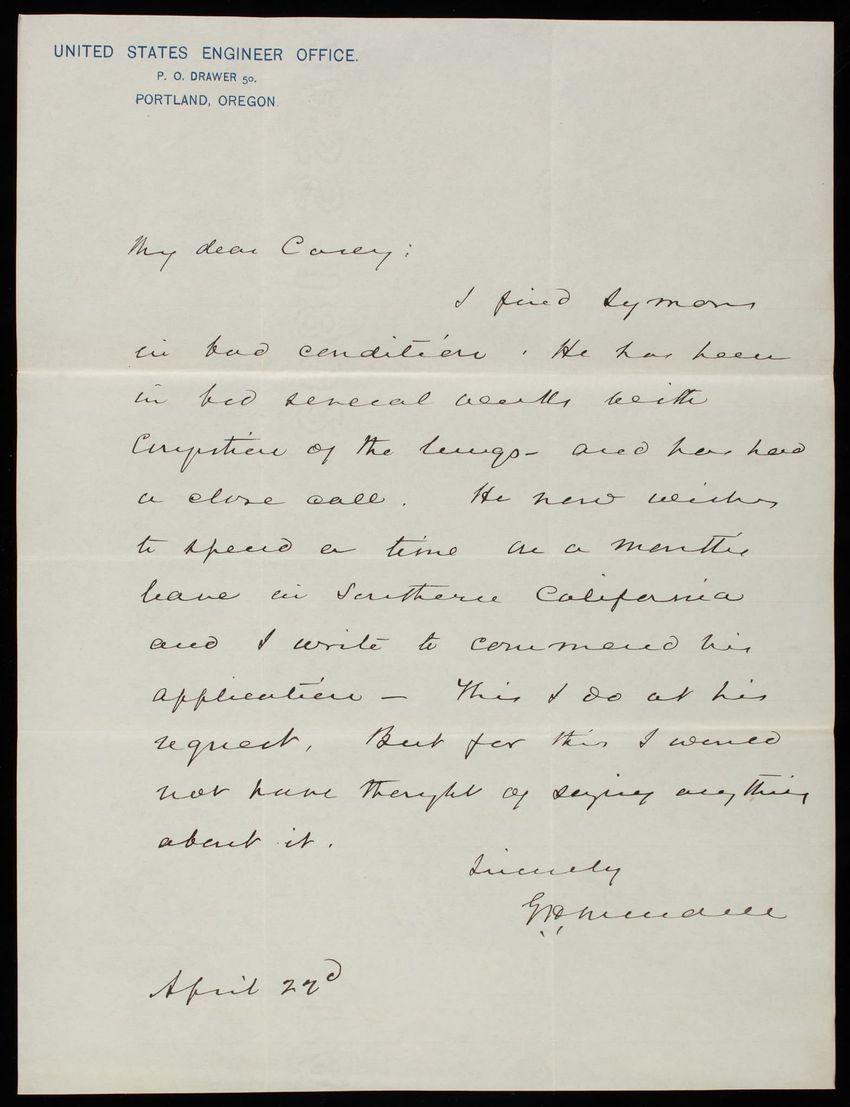 UNITED STATES ENGINEER OFFICE.
P. O. DRAWER 50.
PORTLAND, OREGON.
My dear Casey:
I find Symons
in bad condition. He has been
in bed several weeks with
Congestion of the lungs - and has had
a close call. He now wishes
to spend a time on a months
leave in Southern California
and I write to commend his
application - This I do at his
request. But for this I would
not have thought of saying anything
about it.
Sincerely
GHMendell
April 22d